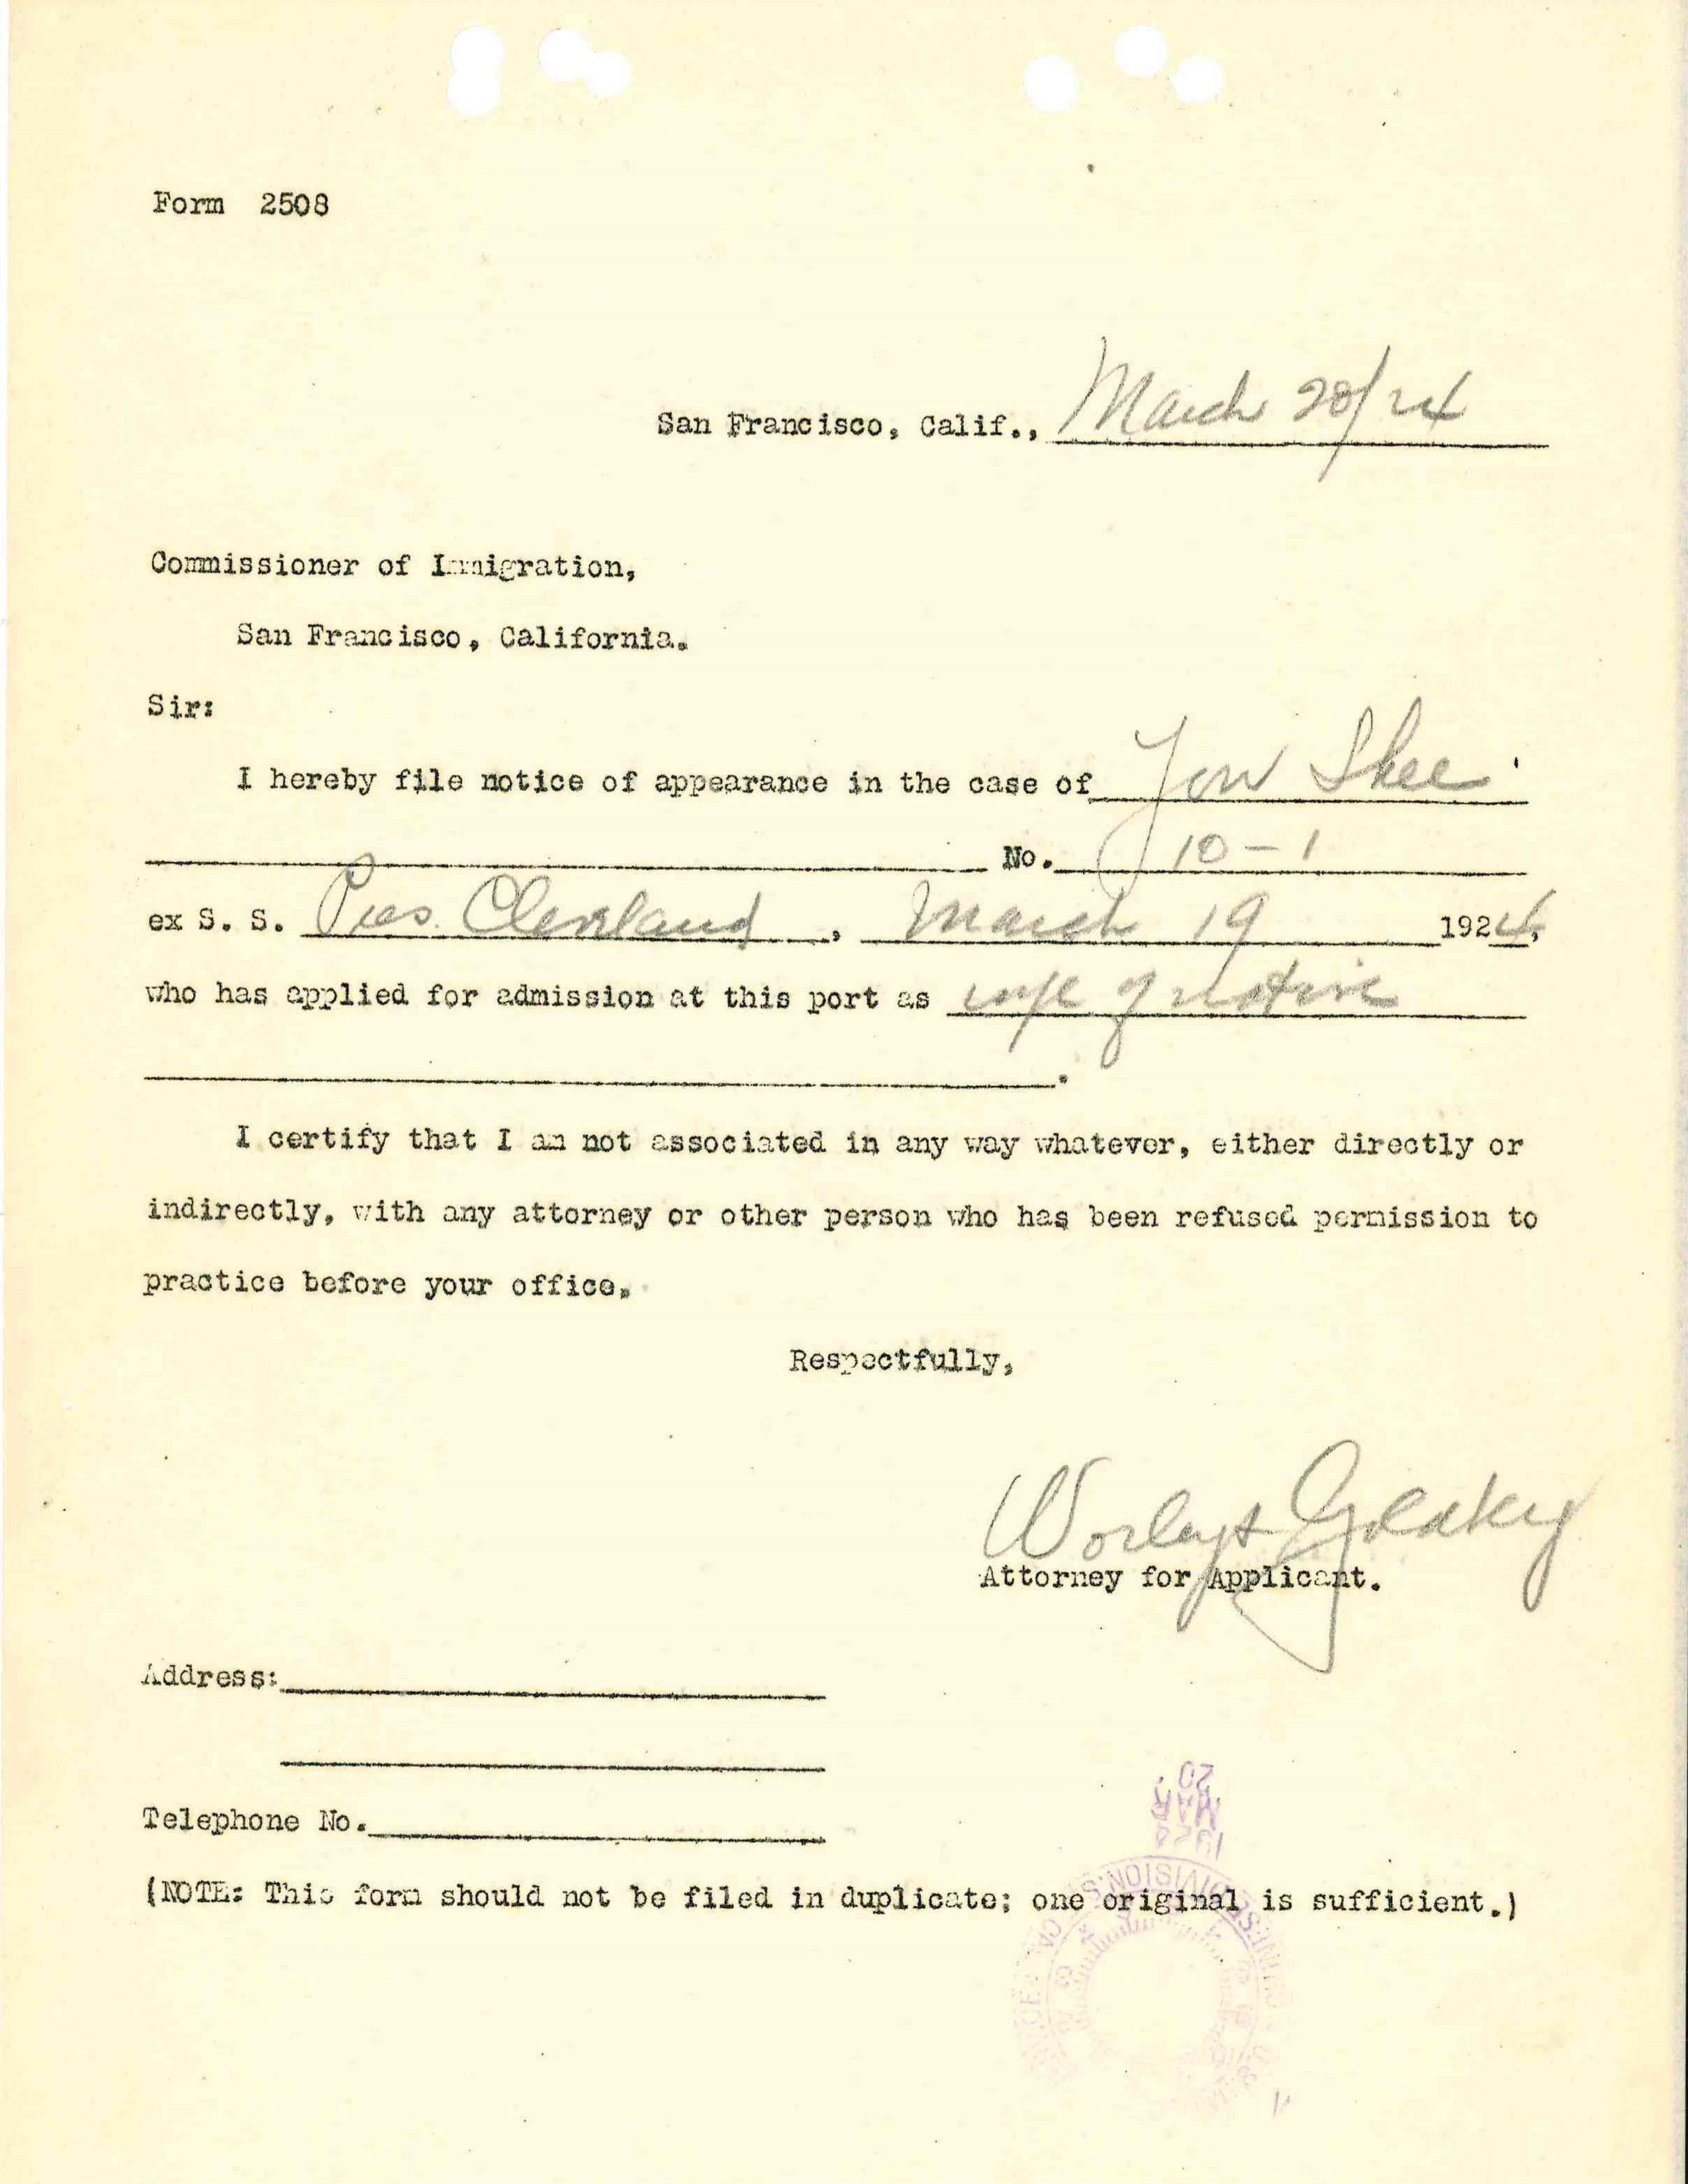 Form 2508
San Francisco, Calif., March 20/24
Commissioner of Immigration,
San Francisco, California.
Sir:
I hereby file notice of appearance in the case of Jow Shee
No. 10-1
ex S. S. Pres. Cleveland, March 19 1924,
who has applied for admission at this port as wife of native
.
I certify that I am not associated in any way whatever, either directly or
indirectly, with any attorney or other person who has been refused permission to
practice before your office.
Respectfully,
Attorney for Applicant.
Address:
Telephone No.
(NOTE: This form should not be filed in duplicate; one original is sufficient.)
1924
MAR
20